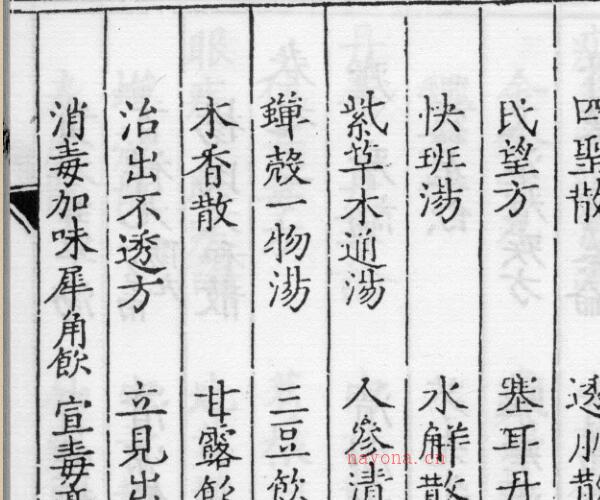 四聖散 透小散
氏望方 塞耳丹
快班湯 水解散
紫草木通湯 人參清
蟬殼一物湯 三豆飲
木香散 甘露飲
治出不透方 立見出
消毒加味犀角飲 宣毒
nayona.cn